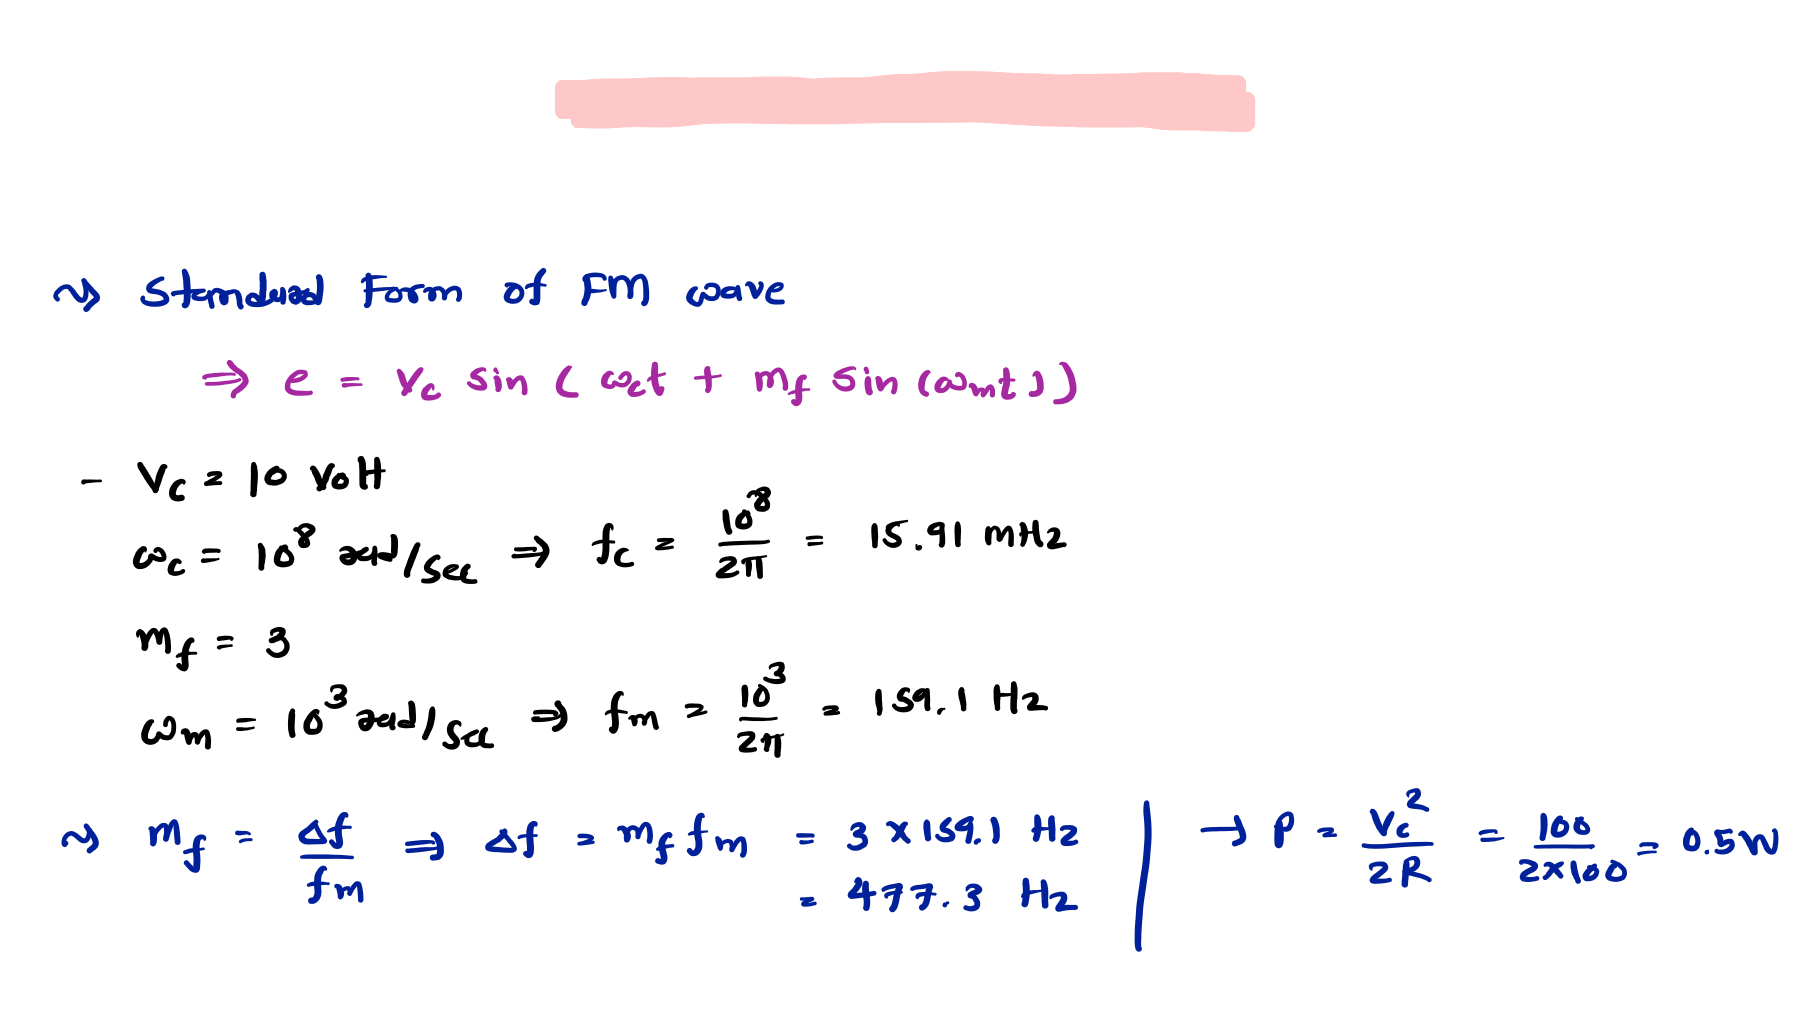 ↝ Standard Form of FM wave
⇒ e = Vc sin ( ωct + mf sin (ωmt) )
- Vc = 10 Volt
ωc = 10^8 rad/sec ⇒ fc = 10^8/2π = 15.91 mHz
mf = 3
ωm = 10^3 rad/sec ⇒ fm = 10^3/2π = 159.1 Hz
↝ mf = Δf/fm ⇒ Δf = mf fm = 3 × 159.1 Hz
= 477.3 Hz
→ P = Vc^2/2R = 100/2×100 = 0.5W